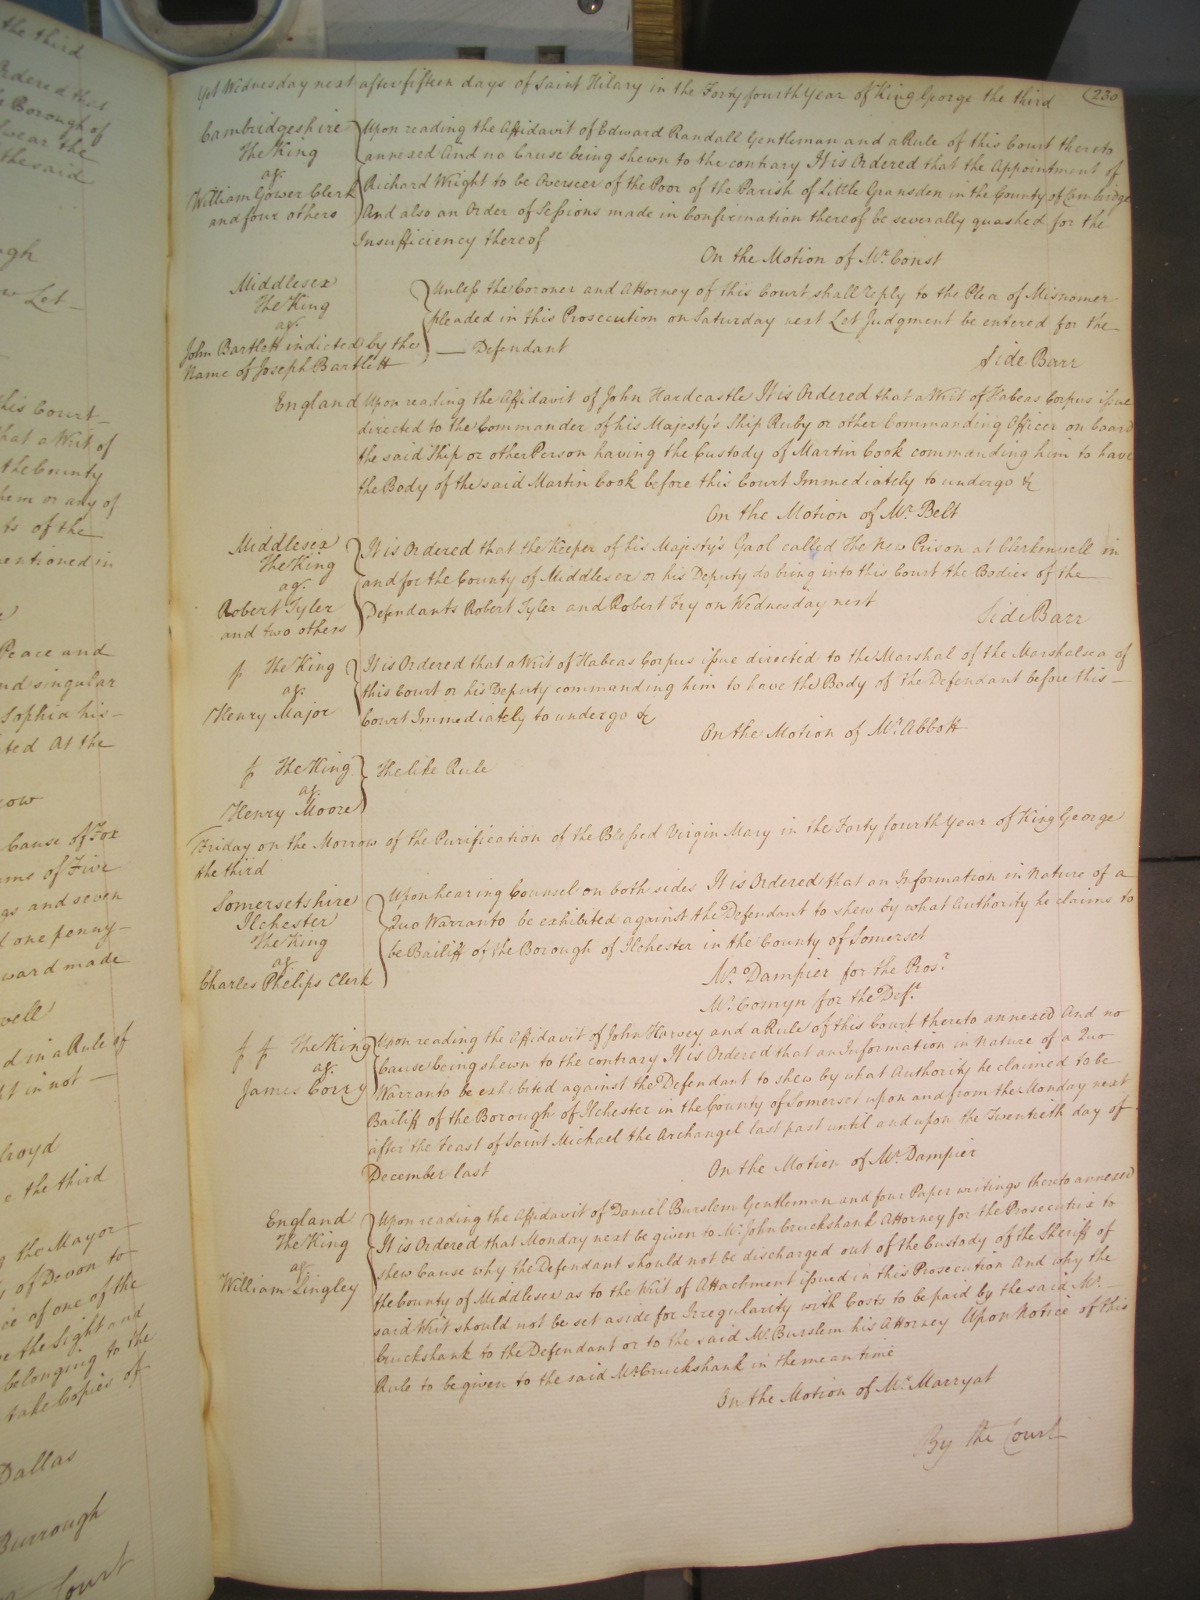 the third
Ordered that
Borough of
swear the
the said
ugh
Let
this Court
that a Writ of
the County
them or any of
ts of the
mentioned in
Peace and
and singular
Sophia his
ted At the
Cause of Fox
ums of Five
gs and seven
d one penny
ward made
well
d in a Rule of
t in not
e the third
the Mayor
of Devon to
ce of one of the
the sight and
belonging to the
take Copies of
Dallas
Burrough
Court
Yet Wednesday next after fifteen days of Saint Hilary in the Forty fourth Year of King George the third
230
Cambridgeshire
The King
agt
William Gower Clerk
and four others
Upon reading the Affidavit of Edward Randall Gentleman and a Rule of this Court thereto
annexed And no Cause being shewn to the contrary It is Ordered that the Appointment of
Richard Wright to be Overseer of the Poor of the Parish of Little Gransden in the County of Cambridge
And also an Order of Sessions made in Confirmation thereof be severally quashed for the
Insufficiency thereof
On the Motion of Mr. Const
Middlesex
The King
agt
John Bartlett indicted by the
Name of Joseph Bartlett
Unless the Coroner and Attorney of this Court shall reply to the Plea of Misnomer
pleaded in this Prosecution on Saturday next Let Judgment be entered for the
— Defendant
Side Barr
England
Upon reading the Affidavit of John Hardcastle It is Ordered that a Writ of Habeas Corpus issue
directed to the Commander of his Majesty's Ship Ruby or other Commanding Officer on board
the said Ship or other Person having the Custody of Martin Cook commanding him to have
the Body of the said Martin Cook before this Court Immediately to undergo &c
On the Motion of Mr. Belt
Middlesex
The King
agt
Robert Tyler
and two others
It is Ordered that the Keeper of his Majesty's Gaol called the New Prison at Clerkenwell in
and for the County of Middlesex or his Deputy do bring into this Court the Bodies of the
Defendants Robert Tyler and Robert Try on Wednesday next
Side Barr
The King
agt
Henry Major
It is Ordered that a Writ of Habeas Corpus issue directed to the Marshal of the Marshalsea of
this Court or his Deputy commanding him to have the Body of the Defendant before this
Court Immediately to undergo &c
On the Motion of Mr. Abbott
The King
agt
Henry Moore
The like Rule
Friday on the Morrow of the Purification of the Blessed Virgin Mary in the Forty fourth Year of King George
the third
Somersetshire
Ilchester
The King
agt
Charles Phelips Clerk
Upon hearing Counsel on both sides It is Ordered that an Information in Nature of a
Quo Warranto be exhibited against the Defendant to shew by what Authority he claims to
be Bailiff of the Borough of Ilchester in the County of Somerset
Mr. Dampier for the Prosr.
Mr. Comyn for the Deft.
The King
agt
James Corry
Upon reading the Affidavit of John Harvey and a Rule of this Court thereto annexed And no
Cause being shewn to the contrary It is Ordered that an Information in Nature of a Quo
Warranto be exhibited against the Defendant to shew by what Authority he claimed to be
Bailiff of the Borough of Ilchester in the County of Somerset upon and from the Monday next
after the Feast of Saint Michael the Archangel last past until and upon the Twentieth day of
December last
On the Motion of Mr. Dampier
England
The King
agt
William Lingley
Upon reading the Affidavit of Daniel Burslem Gentleman and four Paper writings thereto annexed
It is Ordered that Monday next be given to Mr. John Cruckshank Attorney for the Prosecutrix to
shew Cause why the Defendant should not be discharged out of the Custody of the Sheriff of
the County of Middlesex as to the Writ of Attachment issued in this Prosecution And why the
said Writ should not be set aside for Irregularity with Costs to be paid by the said Mr.
Cruckshank to the Defendant or to the said Mr. Burslem his Attorney Upon Notice of this
Rule to be given to the said Mr. Cruckshank in the mean time
On the Motion of Mr. Marryat
By the Court